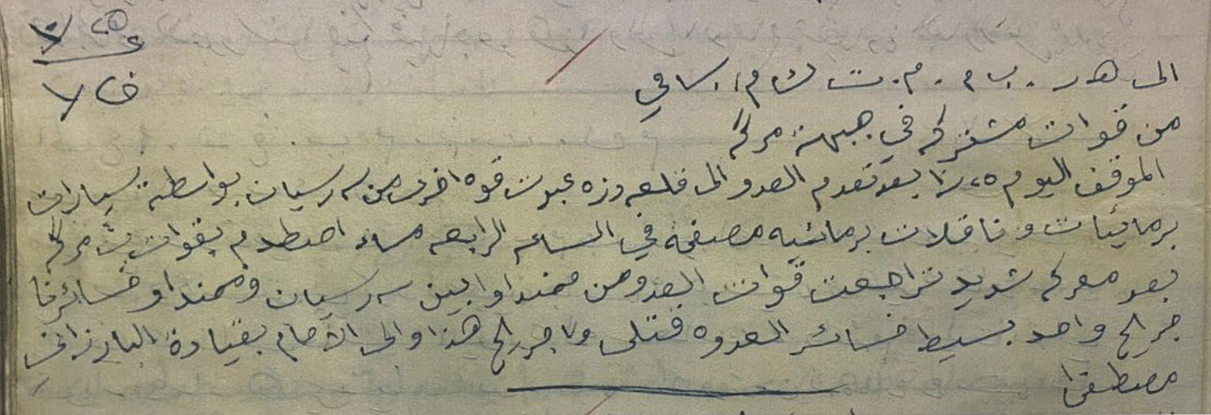 الى هـ ر . ب م . م . ت ك م / . سامي
من قوات مشتركه في جبهة مركه
الموقف اليوم ٢٥ بعد تقدم العدو الى قلعه دزه عبرت قوه اخرى من سه رسيان بواسطة سيارات
برمائيات و ناقلات برمائيه مصفحة في الساعه الرابعه مساء اصطدم بقوات بيشمركه
بعد معركه شديد تراجعت قوات العدو من همنداوا بين سه رسيان و همنداو خسائرنا
جريح واحد بسيط خسائر العدو ٥ قتلى و ٧ جريح هذا والى الامام بقيادة البارزاني
مصطفى